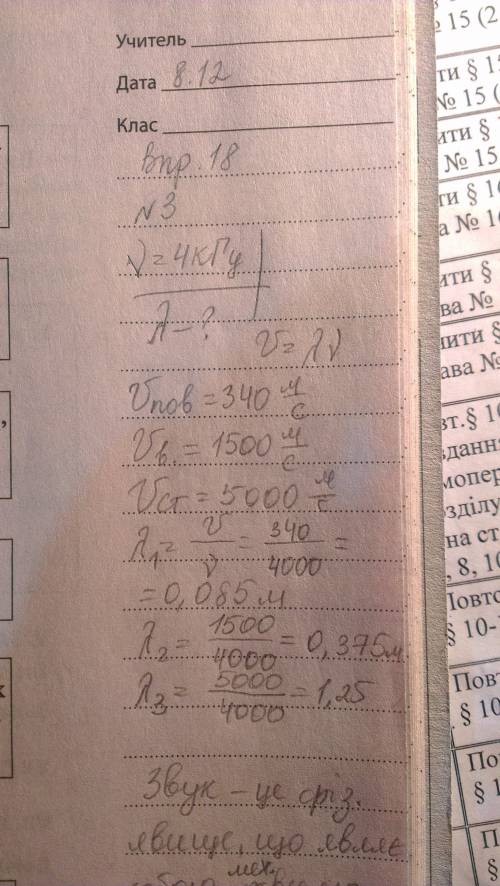 Учитель
Дата 8.12
Клас
Впр. 18
№3
ν = 4кГц
λ - ?
v = λν
vпов = 340 м/с
vв. = 1500 м/с
vст = 5000 м/с
λ₁ = v/ν = 340/4000 =
= 0,085 м
λ₂ = 1500/4000 = 0,375 м
λ₃ = 5000/4000 = 1,25
Звук – це фіз.
явище, що являє
мех.
№ 15 (2
ти § 15
№ 15 (
ити §
№ 15
ти § 1
а № 1
ити §
ва №
ити §
ава №
вт. § 10
вдання
мопер
зділу
на ст
, 8, 10
Повто
§ 10-
Повт
§ 10
По
§ 1
П
§